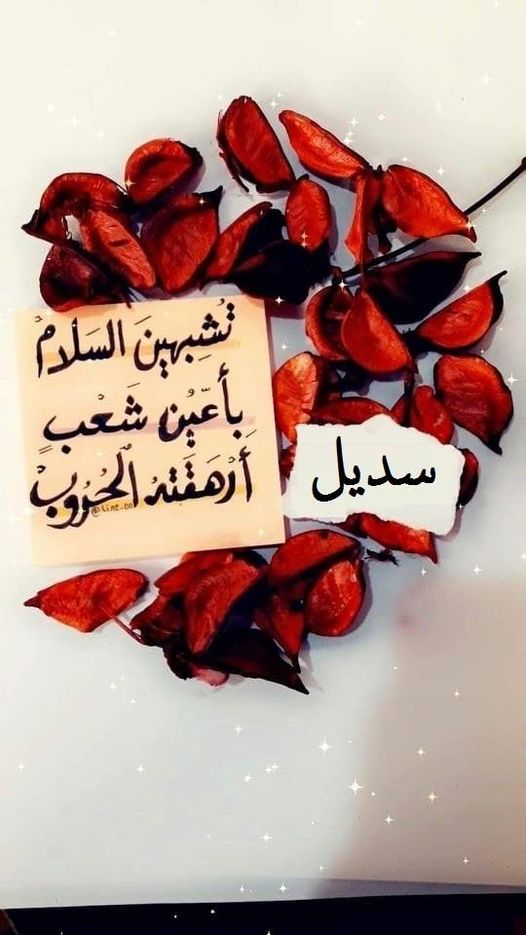 تُشبِهينَ السَلامْ
بأعيُن شَعْبٍ
أَرهَقَتهُ الحُرُوبْ
سديل